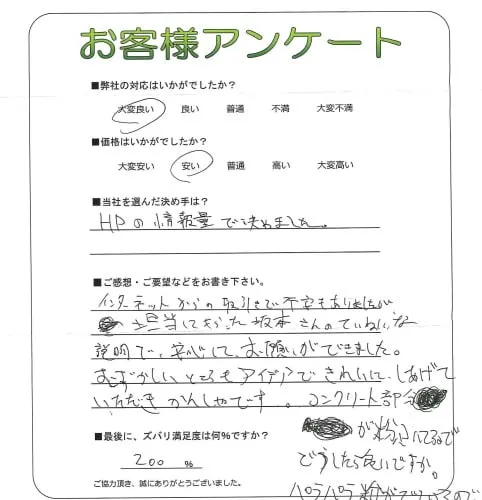 お客様アンケート
■弊社の対応はいかがでしたか?
大変良い 良い 普通 不満 大変不満
■価格はいかがでしたか?
大変安い 安い 普通 高い 大変高い
■当社を選んだ決め手は?
HPの情報量で決めました。
■ご感想・ご要望などをお書き下さい。
インターネットからの取引きで不安もありましたが
担当になった坂本さんのていねいな
説明で、安心して、お願いができました。
むずかしいところもアイデアできれいに、しあげて
いただきかんしゃです。コンクリート部分
■最後に、ズバリ満足度は何%ですか?
が粉ふいてるので
200 %
どうしたら良いですか。
ご協力頂き、誠にありがとうございました。
パラパラ粉がでているので